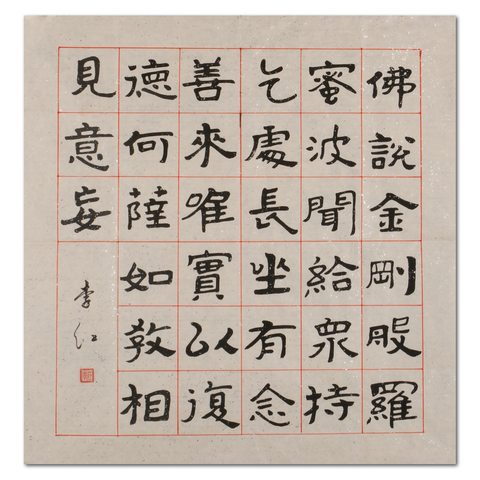 佛說金剛般羅
蜜波聞給眾持
乞處長坐有念
善來唯實以復
德何薩如教相
見意妄
李红